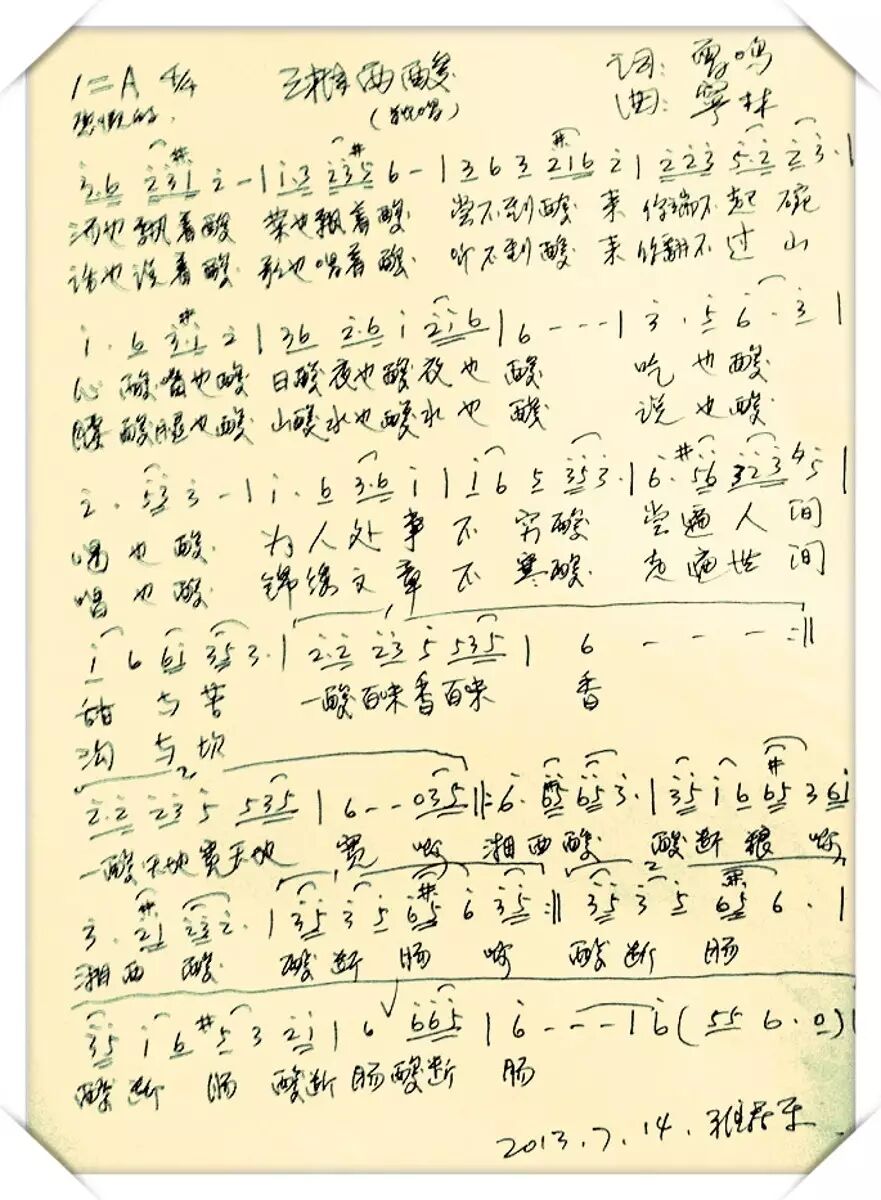 1=A 4/4 湘西酸 词:
(独唱) 曲: 寧林
3.6 231 2 - | 1.3 235 6 - | 3 6 3 216 2 | 223 5.2 23. |
酒也飘着酸 菜也飘着酸 尝不到酸 来 你端不起 碗
话也说着酸 歌也唱着酸 听不到酸 来 你翻不过 山
1 . 6 3.1 2 | 36 2.6 1 216 | 6 - - - | 3 . 5 6 . 3 |
心 酸嘴也酸 日酸夜也酸夜也 酸 吃 也 酸
腰酸腿也酸 山酸水也酸水也 酸 说 也 酸
2 . 53 3 - | 1 . 6 3.6 1 | 1 6 5 35 3. | 6. #56 323 5 |
喝 也 酸 为人处 事 不 穷酸 尝遍人 间
唱 也 酸 锦绣文 章 不 寒酸 走遍世 间
1 6 61 35 3. | 2.2 23 5 535 | 6 - - - :||
甜 与 苦 一酸百味香百味 香
沟 与 坎
2.2 23 5 535 | 6 - - 035 ||: 6. 65 65 3. | 35 1 6 65 3 61
一酸天地宽天地 宽 啊 湘西酸 酸断 肠 啊
3 . 21 232. | 35 3 5 65 6 35 :|| 35 3 5 65 6 . |
湘西 酸 酸断 肠 啊 酸断 肠
35 1 6 #5 3 21 | 6 665 | 6 - - - | 6 ( 55 6 . 0 )
酸断 肠 酸断肠酸断 肠
2013.7.14.